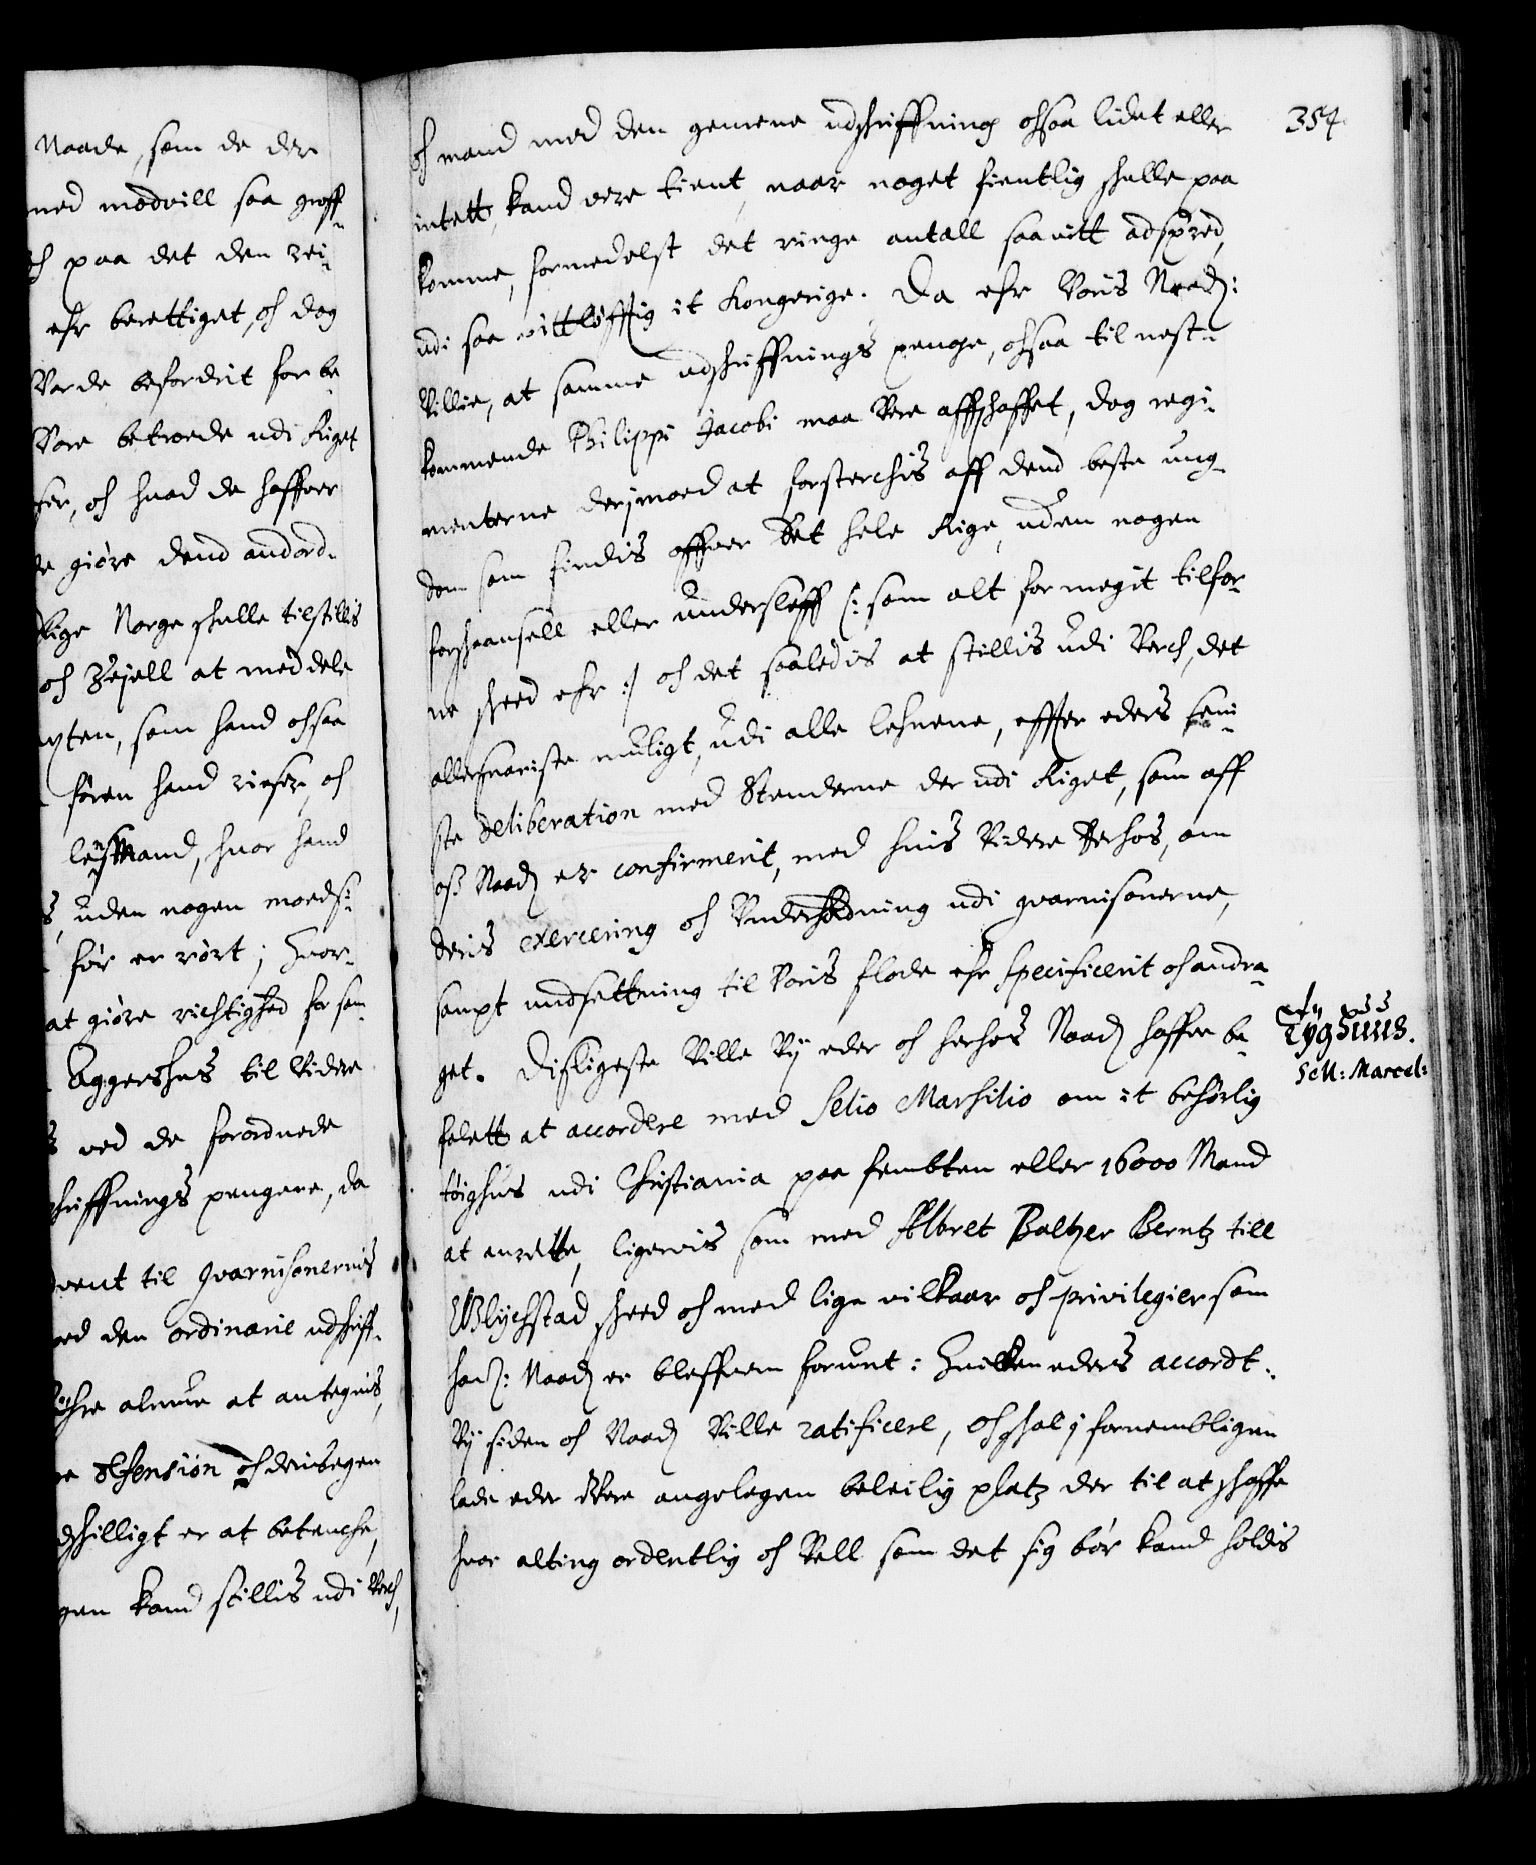 Naade, som de der
med modvill saa groff¬
ch paa det den rei¬
ehr berettiget, och dog
Vorde befordrit for be¬
Vore betroede udi Riget
fer, och huad de haffuer
de giøre dend andord¬
Rige Norge schulle tilstillis
och Zejell at meddele
ten, som hand ochsaa
føren hand reiser, och
lensmand, huor hand
s, uden nogen modsi¬
før er rørt; Huor¬
at giøre richtighed for som¬
Aggershus til Videre
s ved de forordnede
schriffnings pengene, da
vent til gvarnisonernis
med den ordinarie udschriff¬
øhre almue at antegnis,
re defension och deris egen
dschilligt er at betenche,
gen kand stillis udi Verch,
354.
och mand med den gemene udschriffning ochsaa lidet eller
intett, kand vere tient, naar noget fientlig schulle paa
komme, formedelst det ringe antall saa vitt adspred,
udi saa vittløfftig it Kongerige. Da ehr Voris Naad:
Villie, at samme udschriffnings penge, ochsaa til nest¬
kommende Philippi Jacobi maa Vere affschaffet, dog regi¬
menterne derimoed at forsterchis aff dend beste ung¬
dom som findis offuer det hele Rige, uden nogen
forschaansell eller undersleff /: som alt for megit tilfor¬
ne scheed ehr :/ och det saaledis at stillis udi Verch, det
allersnariste muligt, udi alle lehnene, effter eders seni¬
ste deliberation med Stenderne der udi Riget, som aff
oss Naad: er confirmerit, med huis Videre derhos, om
deris exercering och Underholdning udi gvarnisonerne,
sampt undsettning til Voris flode ehr specificerit och andra¬
get. Disligeste Ville Vy eder och herhos Naad: haffue be¬
falett at accordere med Selio Marsilio om it behørlig
tøighus udi Christiania paa fembten eller 16000 Mand
at anrette, ligervis som med Albret Baltzer Berntz till
Glychstad scheed och med lige vilkaar och privilegier som
hans: Naad: er bleffuen forunt: Huilken eders accordt
Vy siden och Naad: Ville ratificere, Och schal j fornembligen
lade eder Vere angelegen beleilig platz der til at schaffe
huor alting ordentlig och Vell som det sig bør kand holdis
Tyghuus.
Sell: Marcel: